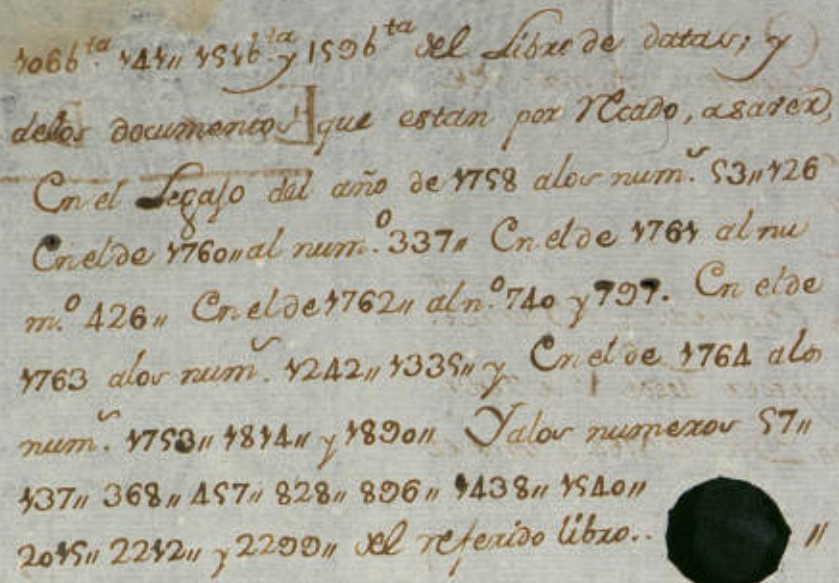 106b.ta 141,, 151b.ta y 159b ta del Libro de datas; y
delos documentos que estan por recado, asaver,
En el Legajo del año de 1758 alos num.s 53,, 126
En el de 1760,, al num.o 337,, En el de 1761 al nu
m.o 426,, En el de 1762,, al n.o 740 y 797. En el de
1763 alos num.s 1242,, 1335,, y En el de 1764 alos
num.s 1753,, 1814,, y 1890,, Y alos numeros 57,,
137,, 368,, 457,, 828,, 896,, 1438,, 1540,,
2015,, 2212,, y 2299,, del referido libro.. ,,